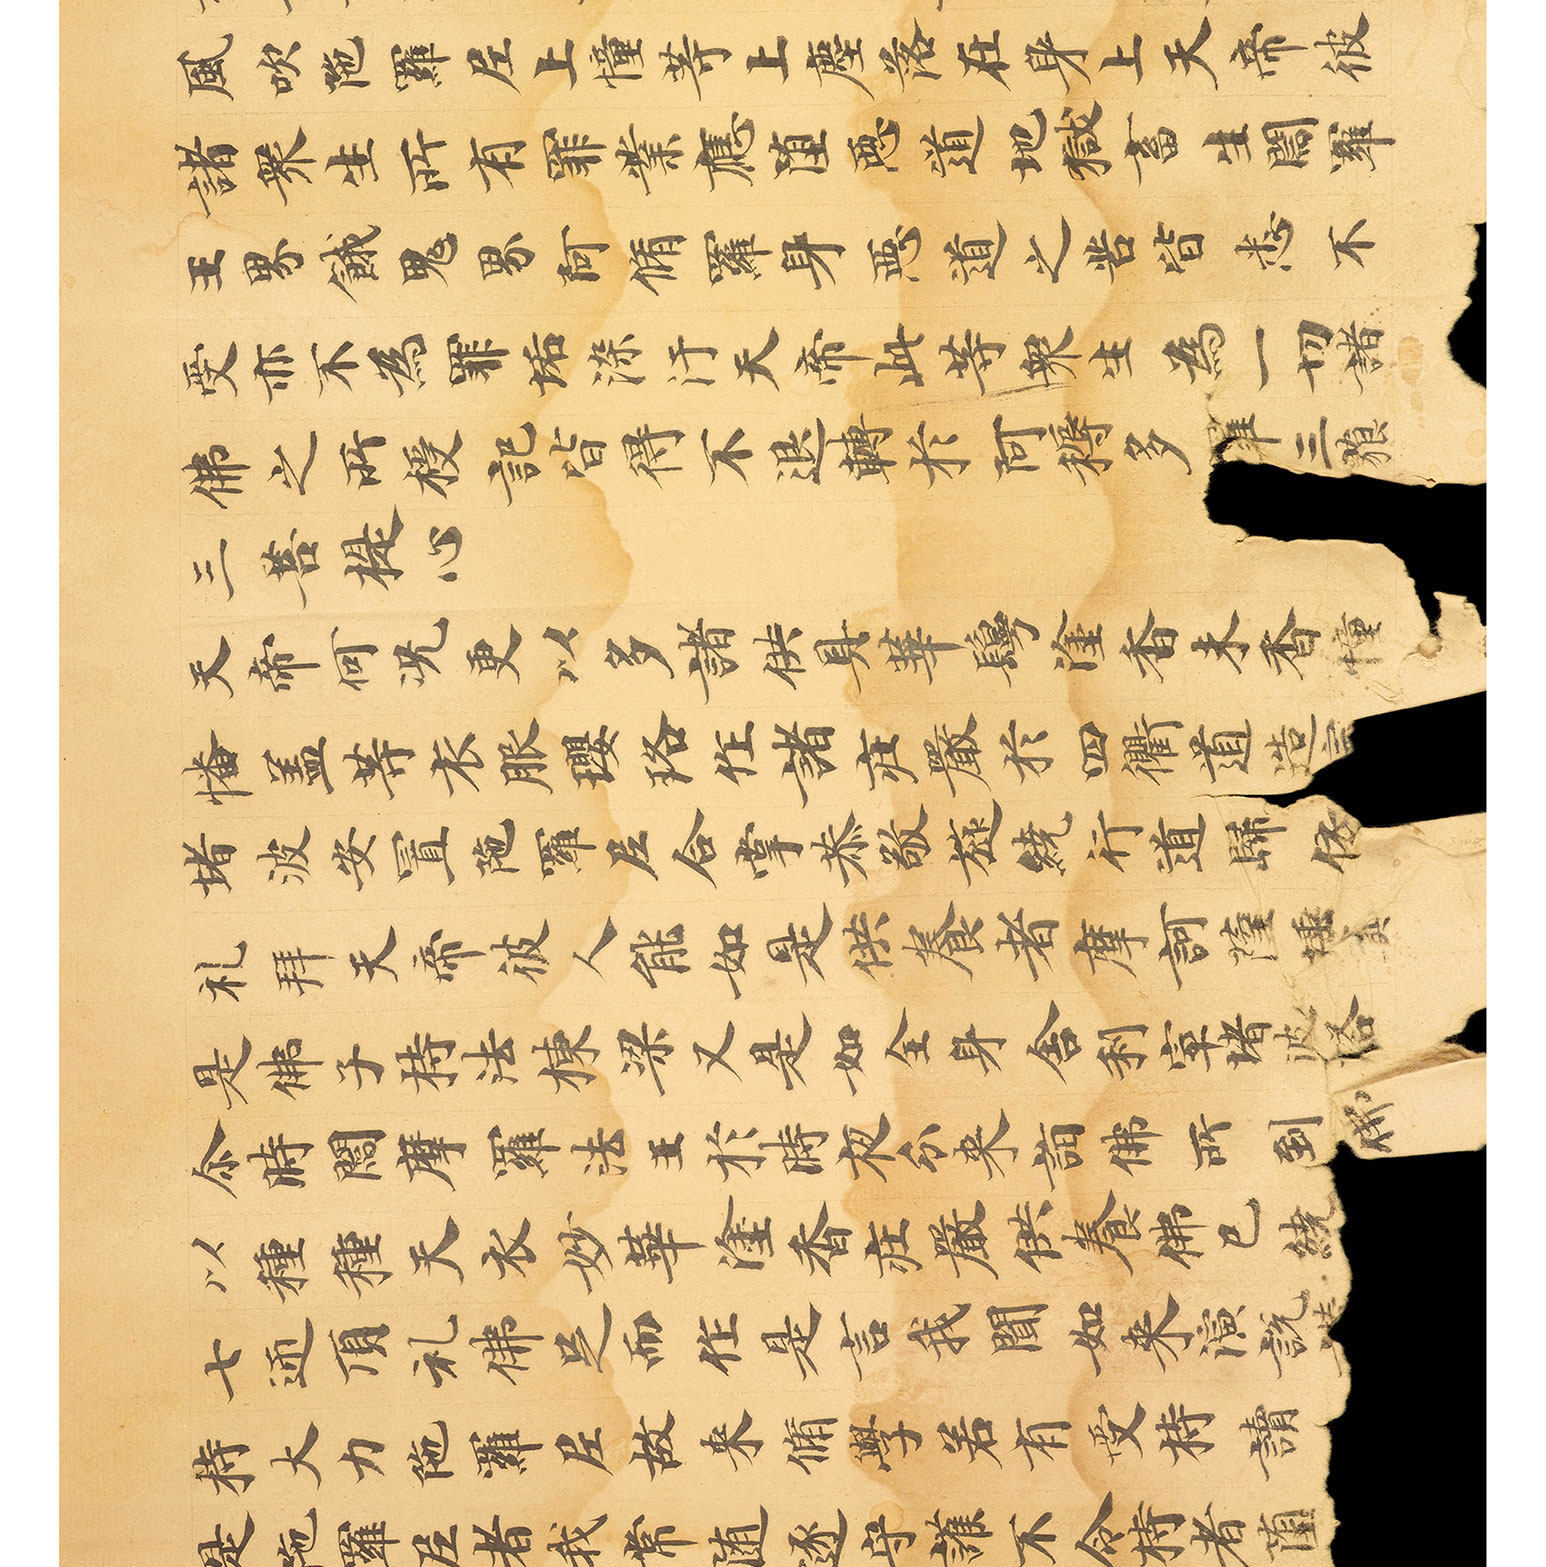 風吹陁羅尼上幢等上塵落在身上天帝彼
諸衆生所有罪業應堕惡道地獄畜生閻羅
王界餓鬼界阿脩羅身惡道之苦皆悉不
受亦不為罪垢染汙天帝此等衆生為一切諸
佛之所授記皆得不退轉於阿耨多羅三藐
三菩提心
天帝何況更以多諸供具華鬘塗香末香幢
幡蓋等衣服瓔珞作諸莊嚴於四衢道造
堵波安置陁羅尼合掌恭敬旋繞行道歸依
礼拜天帝彼人能如是供養者摩訶薩埵真
是佛子持法棟梁又是如全身舍利窣堵波塔
尒時閻摩羅法王於時夜分来詣佛所到佛
以種種天衣妙華塗香莊嚴供養佛已繞
七迊頂礼佛足而作是言我聞如来演說
持大力陁羅尼故来脩學若有受持讀
是陁羅尼者我常随逐守護不令持者堕